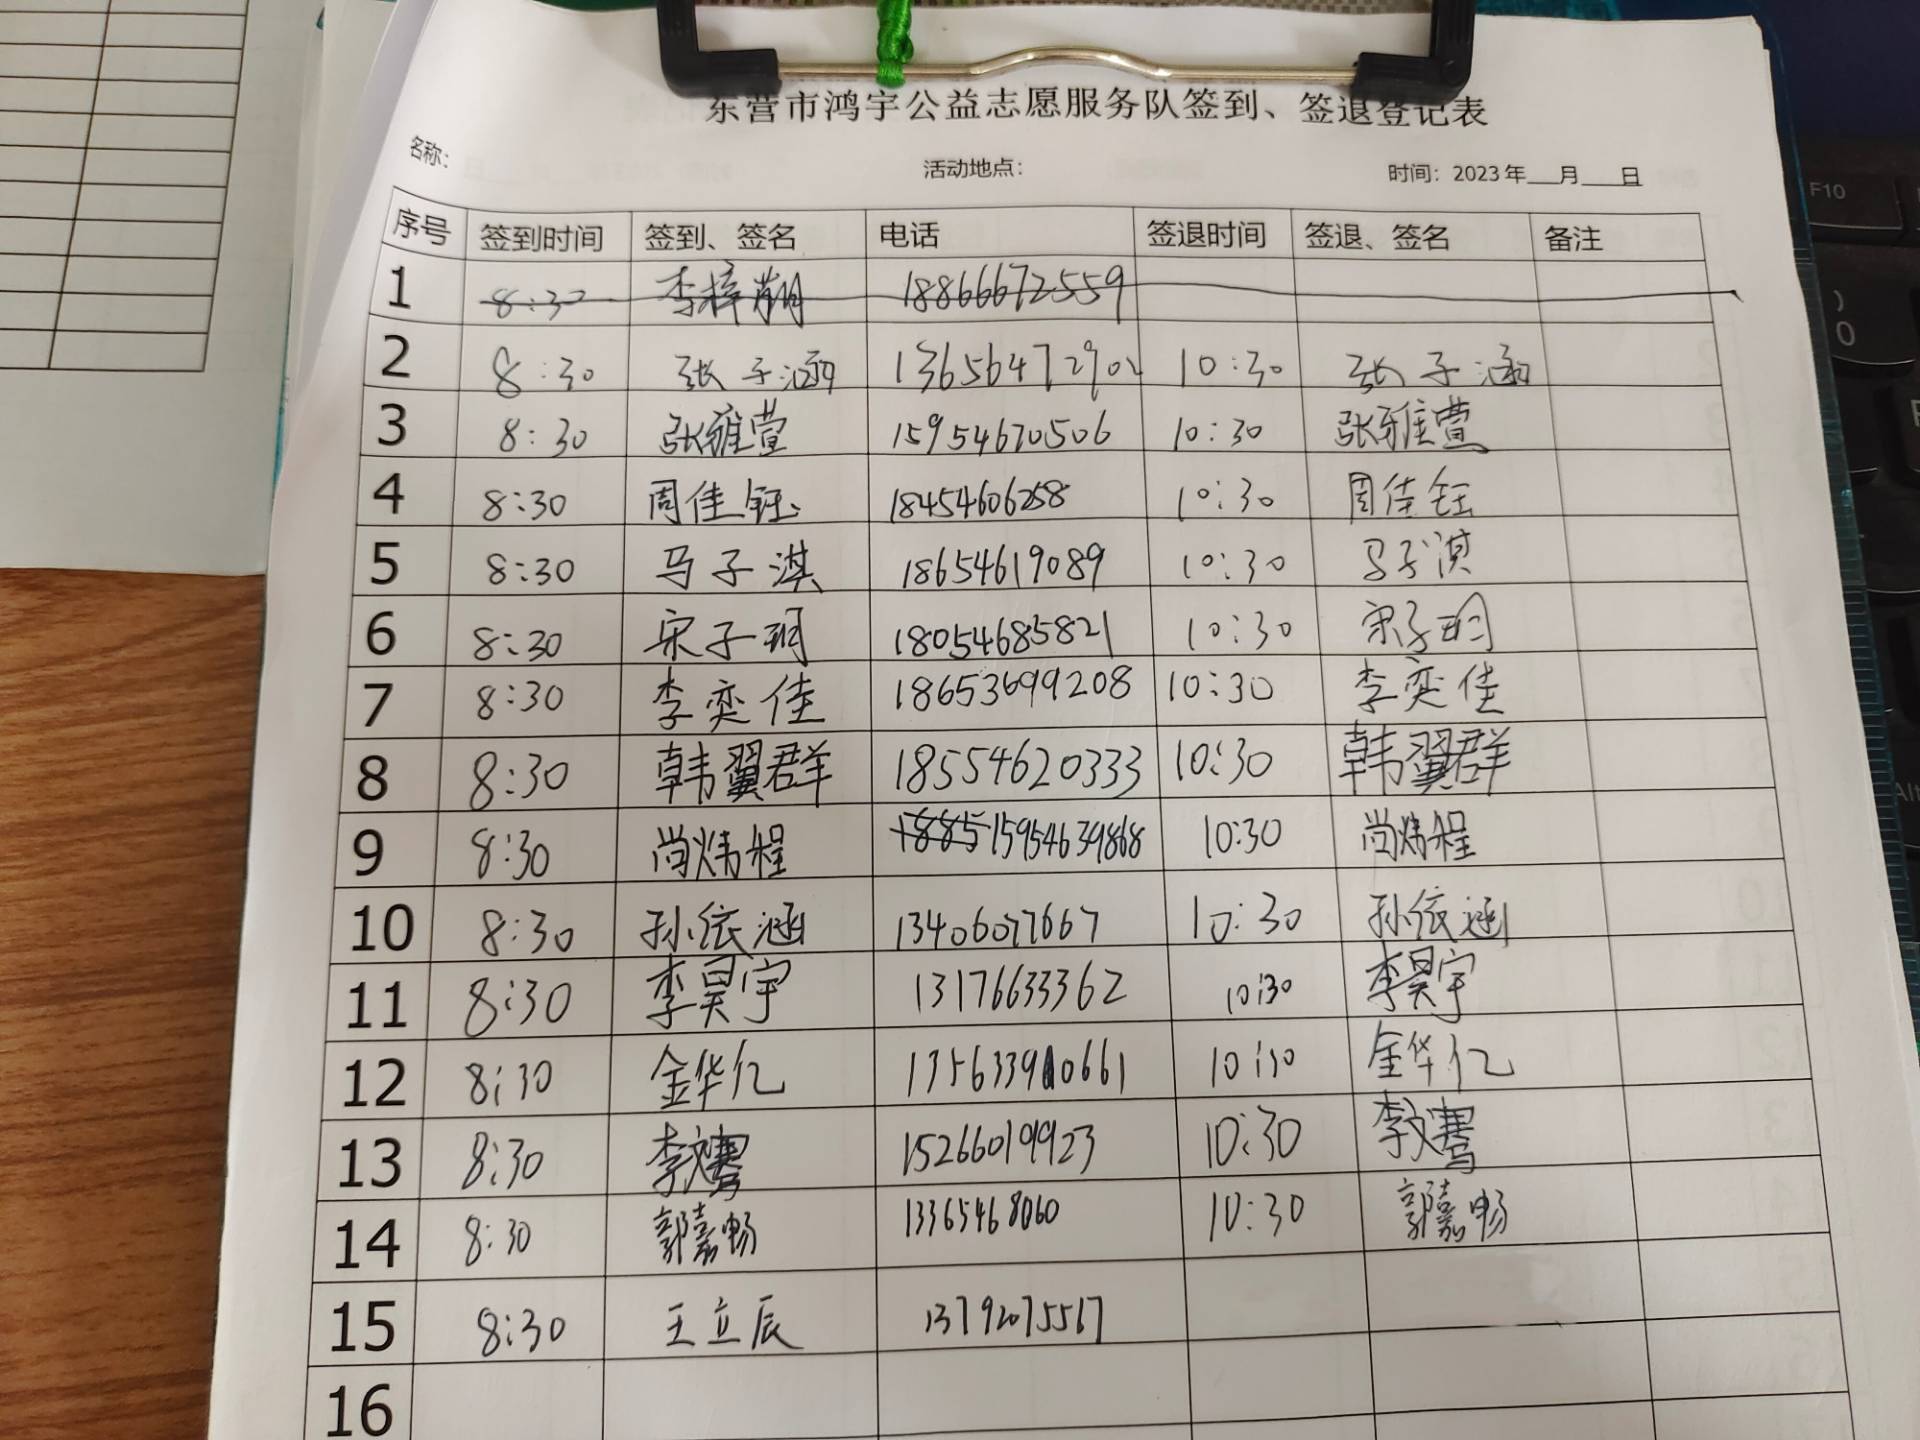 东营市鸿宇公益志愿服务队签到、签退登记表
名称: 活动地点: 时间: 2023年___月___日
序号 签到时间 签到、签名 电话 签退时间 签退、签名 备注
1 8:30 李梓 18866672559
2 8:30 张子涵 13656472902 10:30 张子涵
3 8:30 张雅萱 15954670506 10:30 张雅萱
4 8:30 周佳钰 18454606258 10:30 周佳钰
5 8:30 马子淇 18654619089 10:30 马子淇
6 8:30 宋子玥 18054685821 10:30 宋子玥
7 8:30 李奕佳 18653699208 10:30 李奕佳
8 8:30 韩翼群 18554620333 10:30 韩翼群
9 8:30 尚炜程 1885 15954639868 10:30 尚炜程
10 8:30 孙依涵 13406077667 10:30 孙依涵
11 8:30 李昊宇 13176633362 10:30 李昊宇
12 8:30 金华亿 13563390661 10:30 金华亿
13 8:30 李文骞 15266019923 10:30 李文骞
14 8:30 郭嘉畅 13365468060 10:30 郭嘉畅
15 8:30 王立辰 13792075517
16
F10
)
0
Alt